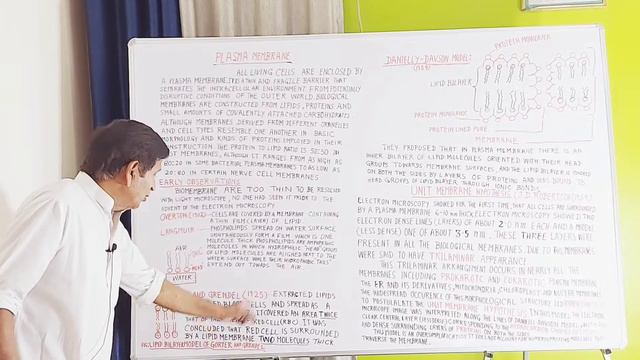 PLASMA MEMBRANE
ALL LIVING CELLS ARE ENCLOSED BY
A PLASMA MEMBRANE, THIS A THIN AND FRAGILE BARRIER THAT
SEPARATES THE INTRACELLULAR ENVIRONMENT FROM POTENTIALLY
DISRUPTIVE CONDITIONS OF THE OUTER WORLD. BIOLOGICAL
MEMBRANES ARE CONSTRUCTED FROM LIPIDS, PROTEINS AND
SMALL AMOUNTS OF COVALENTLY ATTACHED CARBOHYDRATES
ALTHOUGH MEMBRANES DERIVED FROM DIFFERENT ORGANELLES
AND CELL TYPES RESEMBLE ONE ANOTHER IN BASIC
MORPHOLOGY AND KINDS OF PROTEINS EMPLOYED IN THEIR
CONSTRUCTION. THE PROTEIN TO LIPID RATIO IS 50:50 IN
MOST MEMBRANES, ALTHOUGH IT RANGES FROM AS HIGH AS
80:20 IN SOME BACTERIAL PLASMA MEMBRANES TO AS LOW AS
20:80 IN CERTAIN NERVE CELL MEMBRANES
EARLY OBSERVATIONS
BIOMEMBRANE ARE TOO THIN TO BE RESOLVED
WITH LIGHT MICROSCOPE, NO ONE HAD SEEN IT PRIOR TO THE
ADVENT OF THE ELECTRON MICROSCOPY
OVERTON CELLS ARE COVERED BY A MEMBRANE CONTAINING
A THIN LAYER OF LIPID.
LANGMUIR PHOSPHOLIPIDS SPREAD ON WATER SURFACE
SPONTANEOUSLY FORM A FILM, WHICH IS ONE
MOLECULE THICK. PHOSPHOLIPIDS ARE AMPIPATHIC
MOLECULES IN WHICH HYDROPHILIC "HEAD GROUPS"
OF LIPID MOLECULES ARE ALIGNED NEXT TO THE
WATER SURFACE WHILE THEIR HYDROPHOBIC TAILS"
EXTEND OUT TOWARDS THE AIR.
AIR
WATER
AND GRENDEL (1925) EXTRACTED LIPIDS
CELLS AND SPREAD AS A
COVERED AN AREA TWICE
THAT OF RED CELL (RBC). IT WAS
CONCLUDED THAT RED CELL IS SURROUNDED
BY A LIPID MEMBRANE TWO MOLECULES THICK
FIG. LIPID BILAYER MODEL OF GORTER AND GRENDEL
DANIELLY-DAVSON MODEL:
PROTEIN MONOMER
LIPID BILAYER
PROTEIN MONOMER
PROTEIN LINED PORE
MEMBRANE
THEY PROPOSED THAT IN PLASMA MEMBRANE THERE IS AN
INNER BILAYER OF LIPID MOLECULES ORIENTED WITH THEIR HEAD
GROUPS TOWARDS MEMBRANE SURFACES, AND THE LIPID BILAYER IS COVERED
ON BOTH THE SIDES BY LAYERS OF PROTEINS AND BOUND TO
HEAD GROUPS OF LIPID BILAYER THROUGH IONIC BONDS
UNIT MEMBRANE HYPOTHESIS (J.D ROBERTSON
ELECTRON MICROSCOPY SHOWED FOR THE FIRST TIME, THAT ALL CELLS ARE SURROUNDED
BY A PLASMA MEMBRANE 6-10 nm THICK. ELECTRON MICROSCOPY SHOWED IT TWO
ELECTRON DENSE LINES (LAYERS) OF ABOUT 2.0 nm EACH AND A MIDDLE
(LESS DENSE) ONE OF ABOUT 3.5 nm. THESE THREE LAYERS WERE
PRESENT IN ALL THE BIOLOGICAL MEMBRANES. DUE TO THIS MEMBRANES
WERE SAID TO HAVE TRILAMINAR APPEARANCE.
THIS TRILAMINAR ARRANGEMENT OCCURS IN NEARLY ALL THE
MEMBRANES INCLUDING PROKARYOTIC AND EUKARYOTIC PLASMA MEMBRANE
THE ER AND ITS DERIVATIVES, MITOCHONDRIA, CHLOROPLAST AND NUCLEAR MEMBRANE
THE WIDESPREAD OCCURENCE OF THIS MORPHOLOGICAL STRUCTURE LED
TO POSTULATE THE UNIT MEMBRANE HYPOTHESIS
MICROSCOPE IMAGE WAS INTERPRETED ALONG THE LINES OF DANIELLI DAVSON MODEL